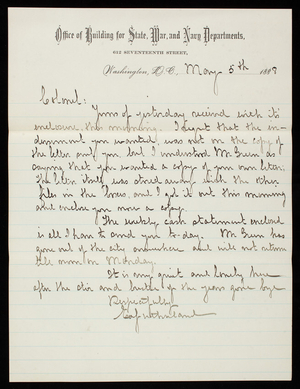 Office of Building for State, War, and Navy Departments,
632 SEVENTEENTH STREET,
Washington, D.C., May 5th 1888
Colonel:
Yours of yesterday received with its
enclosure this morning. I regret that the in-
dorsement you wanted was not on the copy of
the letter sent you, but I understood Mr Green as
saying that you wanted a copy of your own letter.
The letter itself was stored away with the other
files in the house and I got it out this morning
and enclose you now a copy.
The weekly cash statement enclosed
is all I have to send you to-day. Mr Green has
gone out of the city somewhere and will not return
till noon on Monday.
It is very quiet and lonely here
after the stir and bustle of the years gone bye
Respectfully